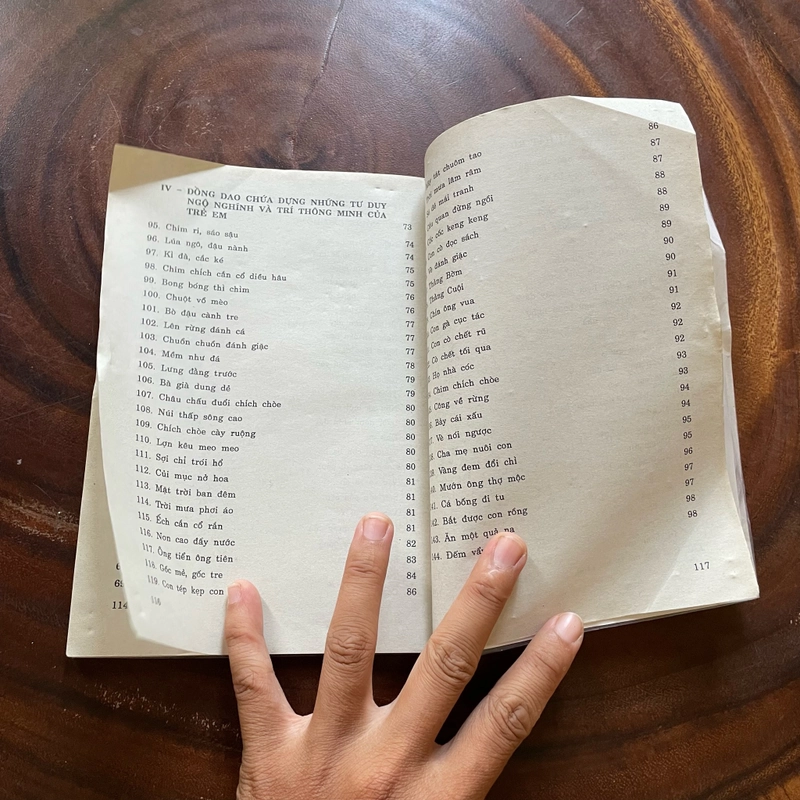 IV – ĐỒNG DAO CHỨA ĐỰNG NHỮNG TƯ DUY
NGỘ NGHĨNH VÀ TRÍ THÔNG MINH CỦA
TRẺ EM 73
95. Chim ri, sáo sậu 74
96. Lúa ngô, đậu nành 74
97. Kì đà, cắc ké 75
98. Chim chích cắn cổ diều hâu 75
99. Bong bóng thì chìm 76
100. Chuột vồ mèo 76
101. Bò đậu cành tre 77
102. Lên rừng đánh cá 77
103. Chuồn chuồn đánh giậc 77
104. Mềm như đá 78
105. Lưng đằng trước 79
106. Bà già dung dẻ 79
107. Châu chấu đuổi chích chòe 80
108. Núi thấp sông cao 80
109. Chích chòe cày ruộng 80
110. Lợn kêu meo meo 80
111. Sợi chỉ trói hổ 80
112. Củi mục nở hoa 81
113. Mặt trời ban đêm 81
114. Trời mưa phơi áo 81
115. Ếch cắn cổ rắn 81
116. Non cao đầy nước 82
117. Ông tiển ông tiên 83
118. Gốc mẻ, gốc tre 84
119. Con tép kẹp con 86
116
114
chuôm tao 86
mưa lâm râm 87
mái tranh 87
quan đừng ngồi 88
cốc keng keng 88
Con cò đọc sách 89
Vè đánh giặc 89
Thằng Bờm 90
Thằng Cuội 90
Chín ông vua 91
Con gà cục tác 91
Con cò chết rũ 92
Cò chết tối qua 92
Họ nhà cóc 92
Chim chích chòe 93
Công về rừng 94
Bảy cái xấu 94
Vè nói ngược 95
Cha mẹ nuôi con 95
Vàng đem đổi chì 96
Mướn ông thợ mộc 97
141. Cá bống đi tu 97
142. Bắt được con rồng 98
143. Ăn một quả na 98
144. Đếm
117